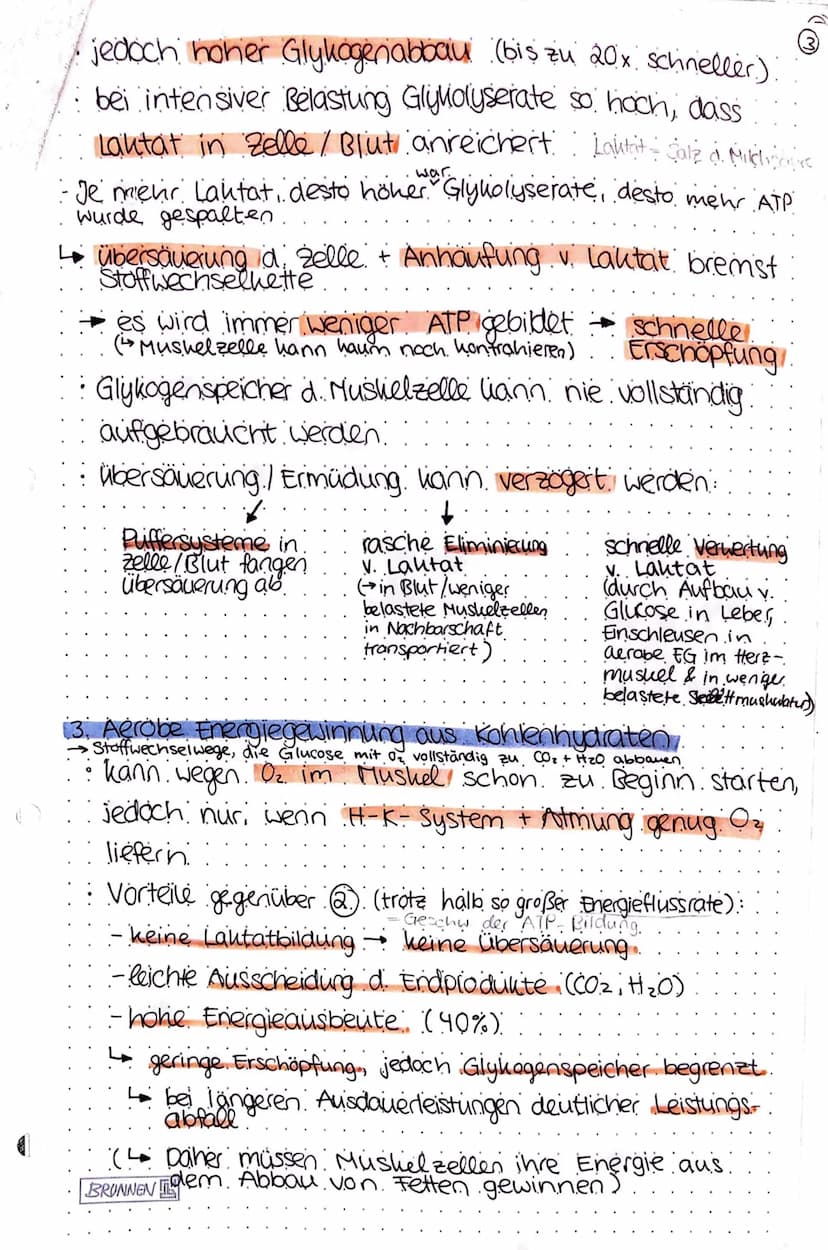 ③
· jedoch hoher Glykogenabbau (bis zu 20x schneller)
· bei intensiver Belastung Glykolyserate so hoch, dass
Laktat in Zelle / Blut anreichert Laktat = Salz d. Milchsäure
- Je mehr Laktat, desto höher war Glykolyserate, desto mehr ATP
wurde gespalten
↳ Übersäuerung d. Zelle + Anhäufung v. Laktat bremst
Stoffwechselkette
→ es wird immer weniger ATP gebildet → schnelle
(↳ Muskelzelle kann kaum noch kontrahieren) Erschöpfung
· Glykogenspeicher d. Muskelzelle kann nie vollständig
aufgebraucht werden
· Übersäuerung / Ermüdung kann verzögert werden:
Puffersysteme in
Zelle/Blut fangen
Übersäuerung ab
rasche Eliminierung
v. Laktat
(→ in Blut/weniger
belastete Muskelzellen
in Nachbarschaft
transportiert)
schnelle Verwertung
v. Laktat
(durch Aufbau v.
Glucose in Leber,
Einschleusen in
aerobe EG im Herz-
muskel & in wenige
belastete
3. Aerobe Energiegewinnung aus Kohlenhydraten
→ Stoffwechselwege, die Glucose mit O₂ vollständig zu CO₂ + H₂O abbauen
· kann wegen O₂ im Muskel schon zu Beginn starten,
jedoch nur, wenn H-K-System + Atmung genug O₂
liefern
· Vorteile gegenüber ② (trotz halb so großer Energieflussrate):
= Geschw der ATP-Bildung
- keine Laktatbildung → keine Übersäuerung
- leichte Ausscheidung d. Endprodukte (CO₂, H₂O)
- hohe Energieausbeute (40%)
↳ geringe Erschöpfung, jedoch Glykogenspeicher begrenzt
↳ bei längeren Ausdauerleistungen deutlicher Leistungs-
abfall
(↳ Daher müssen Muskelzellen ihre Energie aus
dem Abbau von Fetten gewinnen)
BRUNNEN